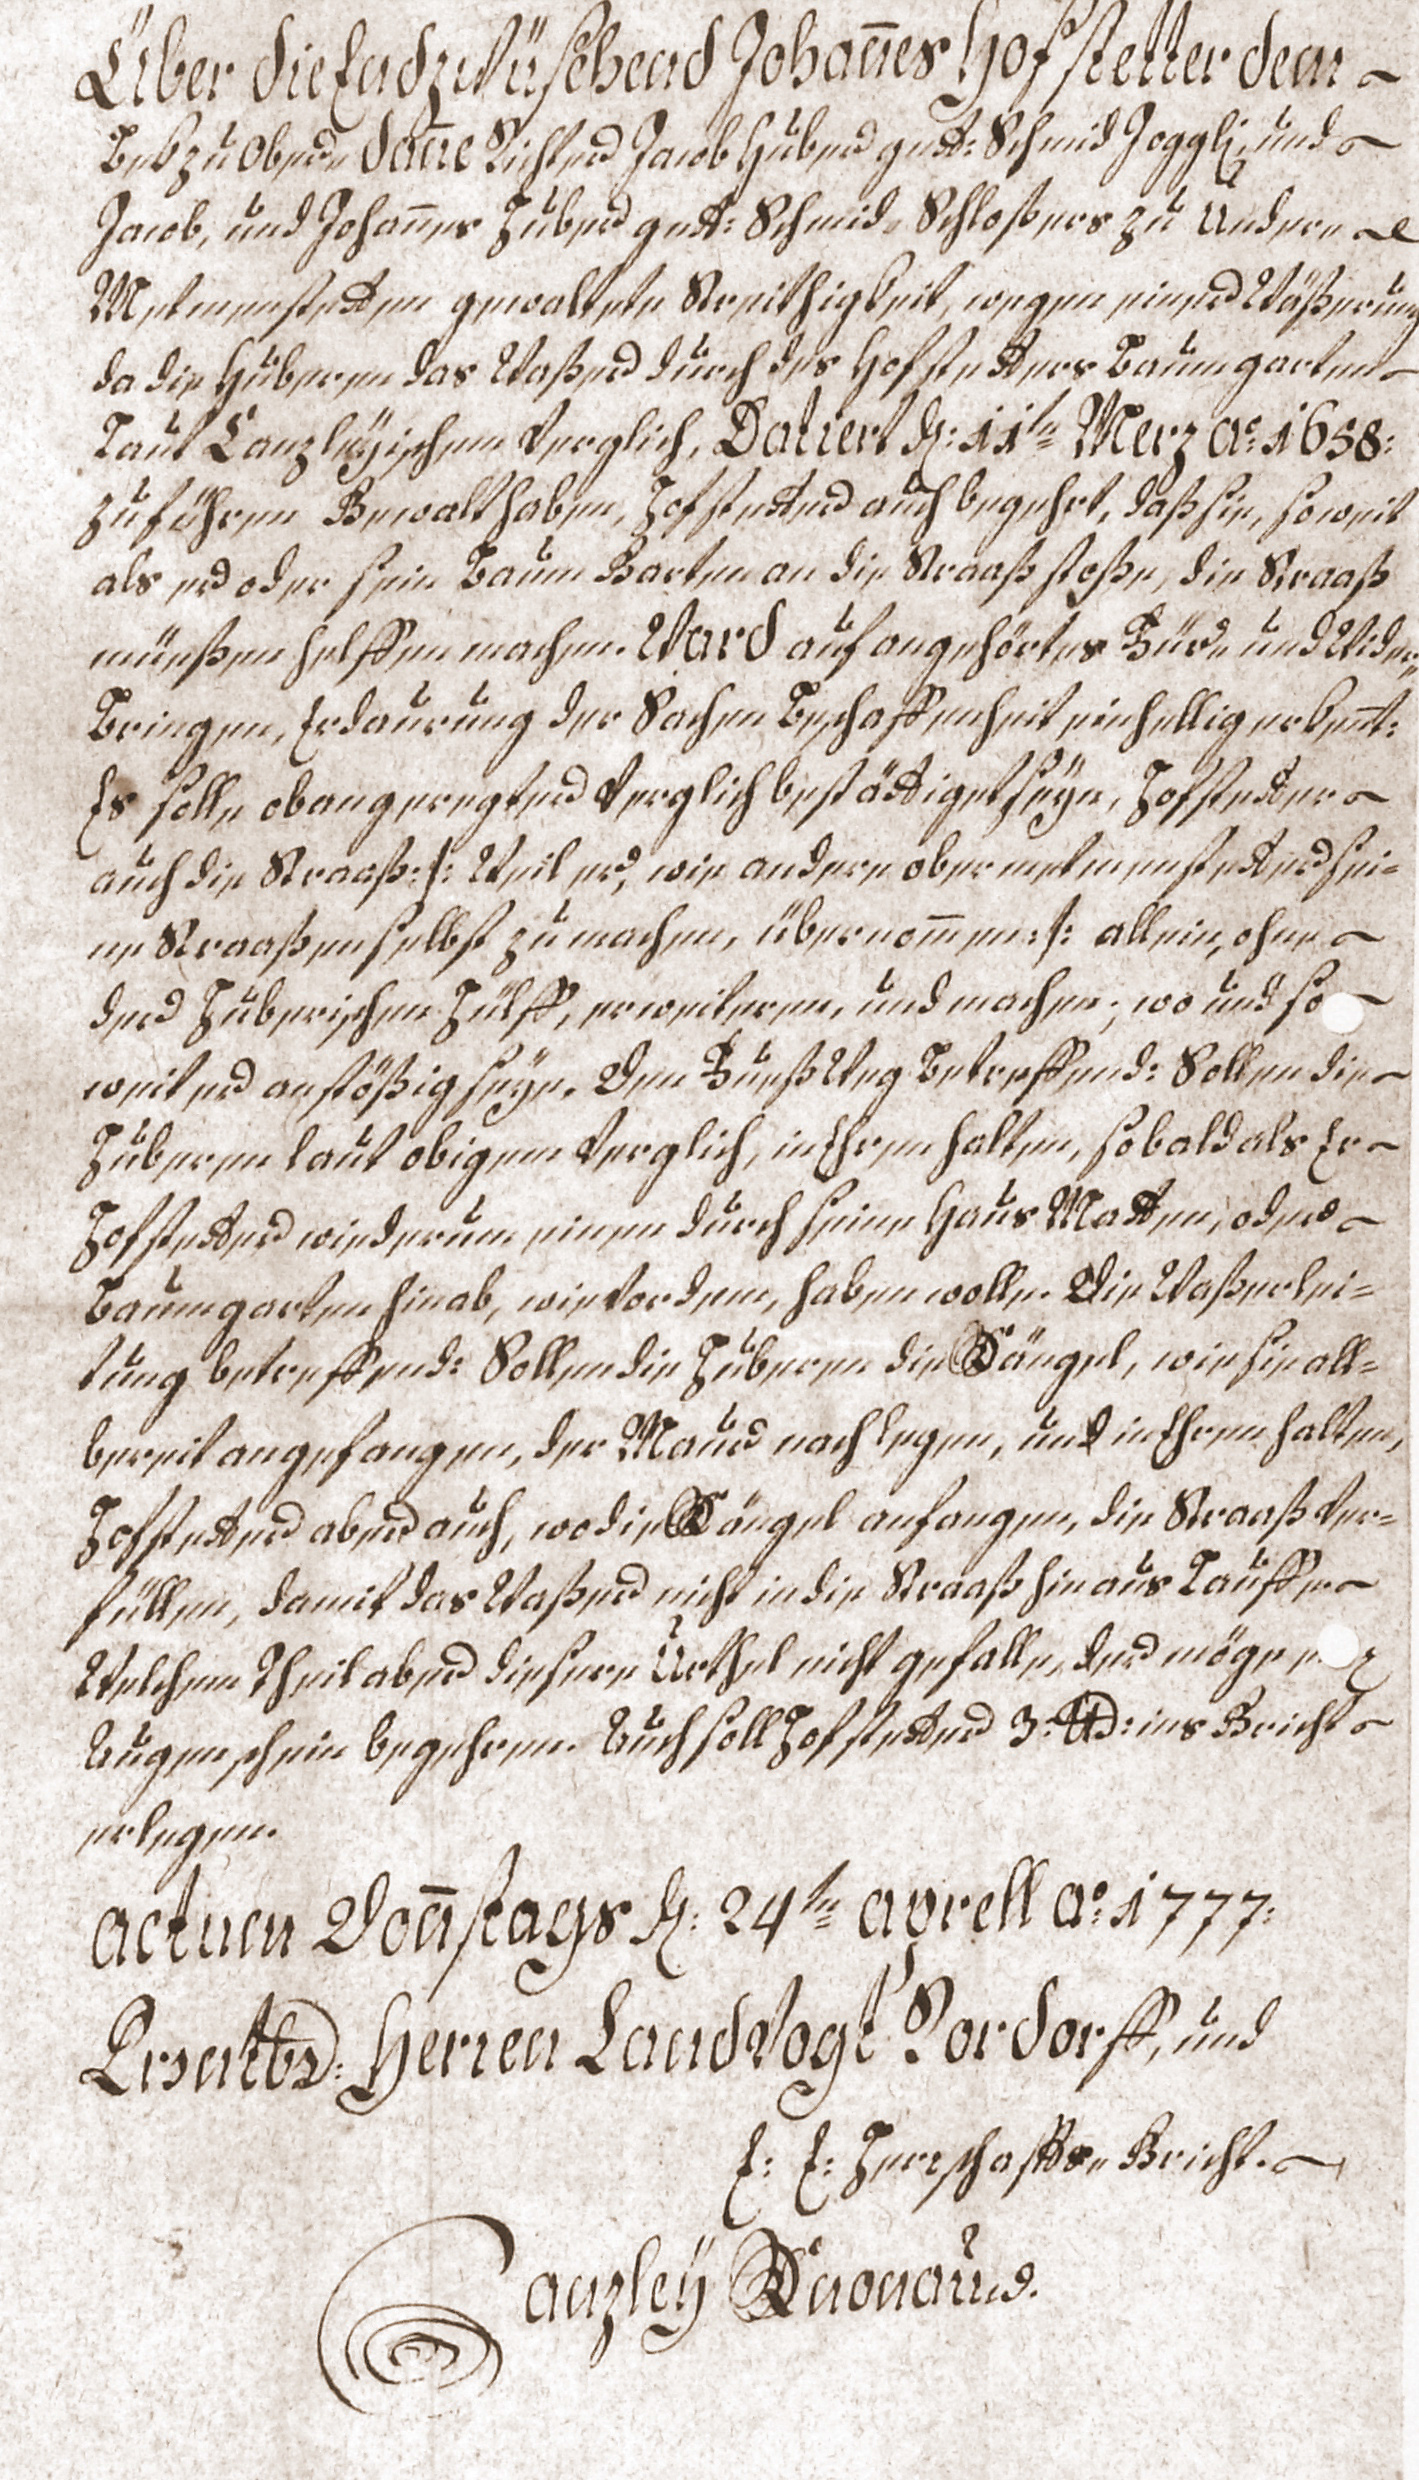 Über die Endzwüschend Johan̄es Hofstetter dem
Beb zu Obere dañe Richterd Jacob Huberd gnt: Schmid Joggli, und
Jacob, und Johan̄es Huberd gntt: Schmid, Schloßers zu Undere
Metmenstetten gewaltete Streithigkeit, wegen einerd Wäßerung
da die Huberen das Waßerd durch des Hofstetters Baumgarten
Laut Canzleÿischem Verglich, Datiert d: 11ten Merz Ao: 1658:
zuführen Gewalt haben, Hofstetterd auch begehrt, daß sie, soweit
als erd oder sein Baum Garten an die Straaß stoße, die Straaß
müeßen helffen machen. Ward auf angehörtes Für- und Wider-
Bringen, Erdaurung der Sachen Beschaffenheit einhellig erkent:
Es solle obangeregterd Verglich bestättiget seÿn, Hofstetter
auch die Straaß :/: Weil erd, wie andere obermetmenstetterd sei-
ne Straaßen selbst zu machen, übernom̄en :/: allein, ohne
derd Huberischen Hülff, erweiteren, und machen; wo und so
weit erd anstößig seÿe. Den Fueß Weg Betreffend: Sollen die
Huberen laut obigem Verglich, in Ehren halten, sobald als Er
Hofstetterd wiederum einen durch seine Haus Matten, oderd
Baumgarten hinab, wie vordem, haben wolle. Die Waßerlei-
tung betreffend: Sollen die Huberen die Kängel, wie sie all-
bereit angefangen, der Maurd nach legen, und in Ehren halten,
Hofstetterd aberd auch, wo die Kängel anfangen, die Straaß ver-
füllen, damit das Waßerd nicht in die Straaß hinaus Lauffe
Welchem Theil aberd diesere Urthel nicht gefalle, derd möge
Augenschein begehren. Auch soll Hofstetterd 3. ℔: ins Gricht
erlegen.
actum Don̄stags d: 24ten aprell ao: 1777:
Præsentbd: Herren LandVogt Pordorff, und
E: E: Herrschaffts- Gricht.
Canzley Knonaud.